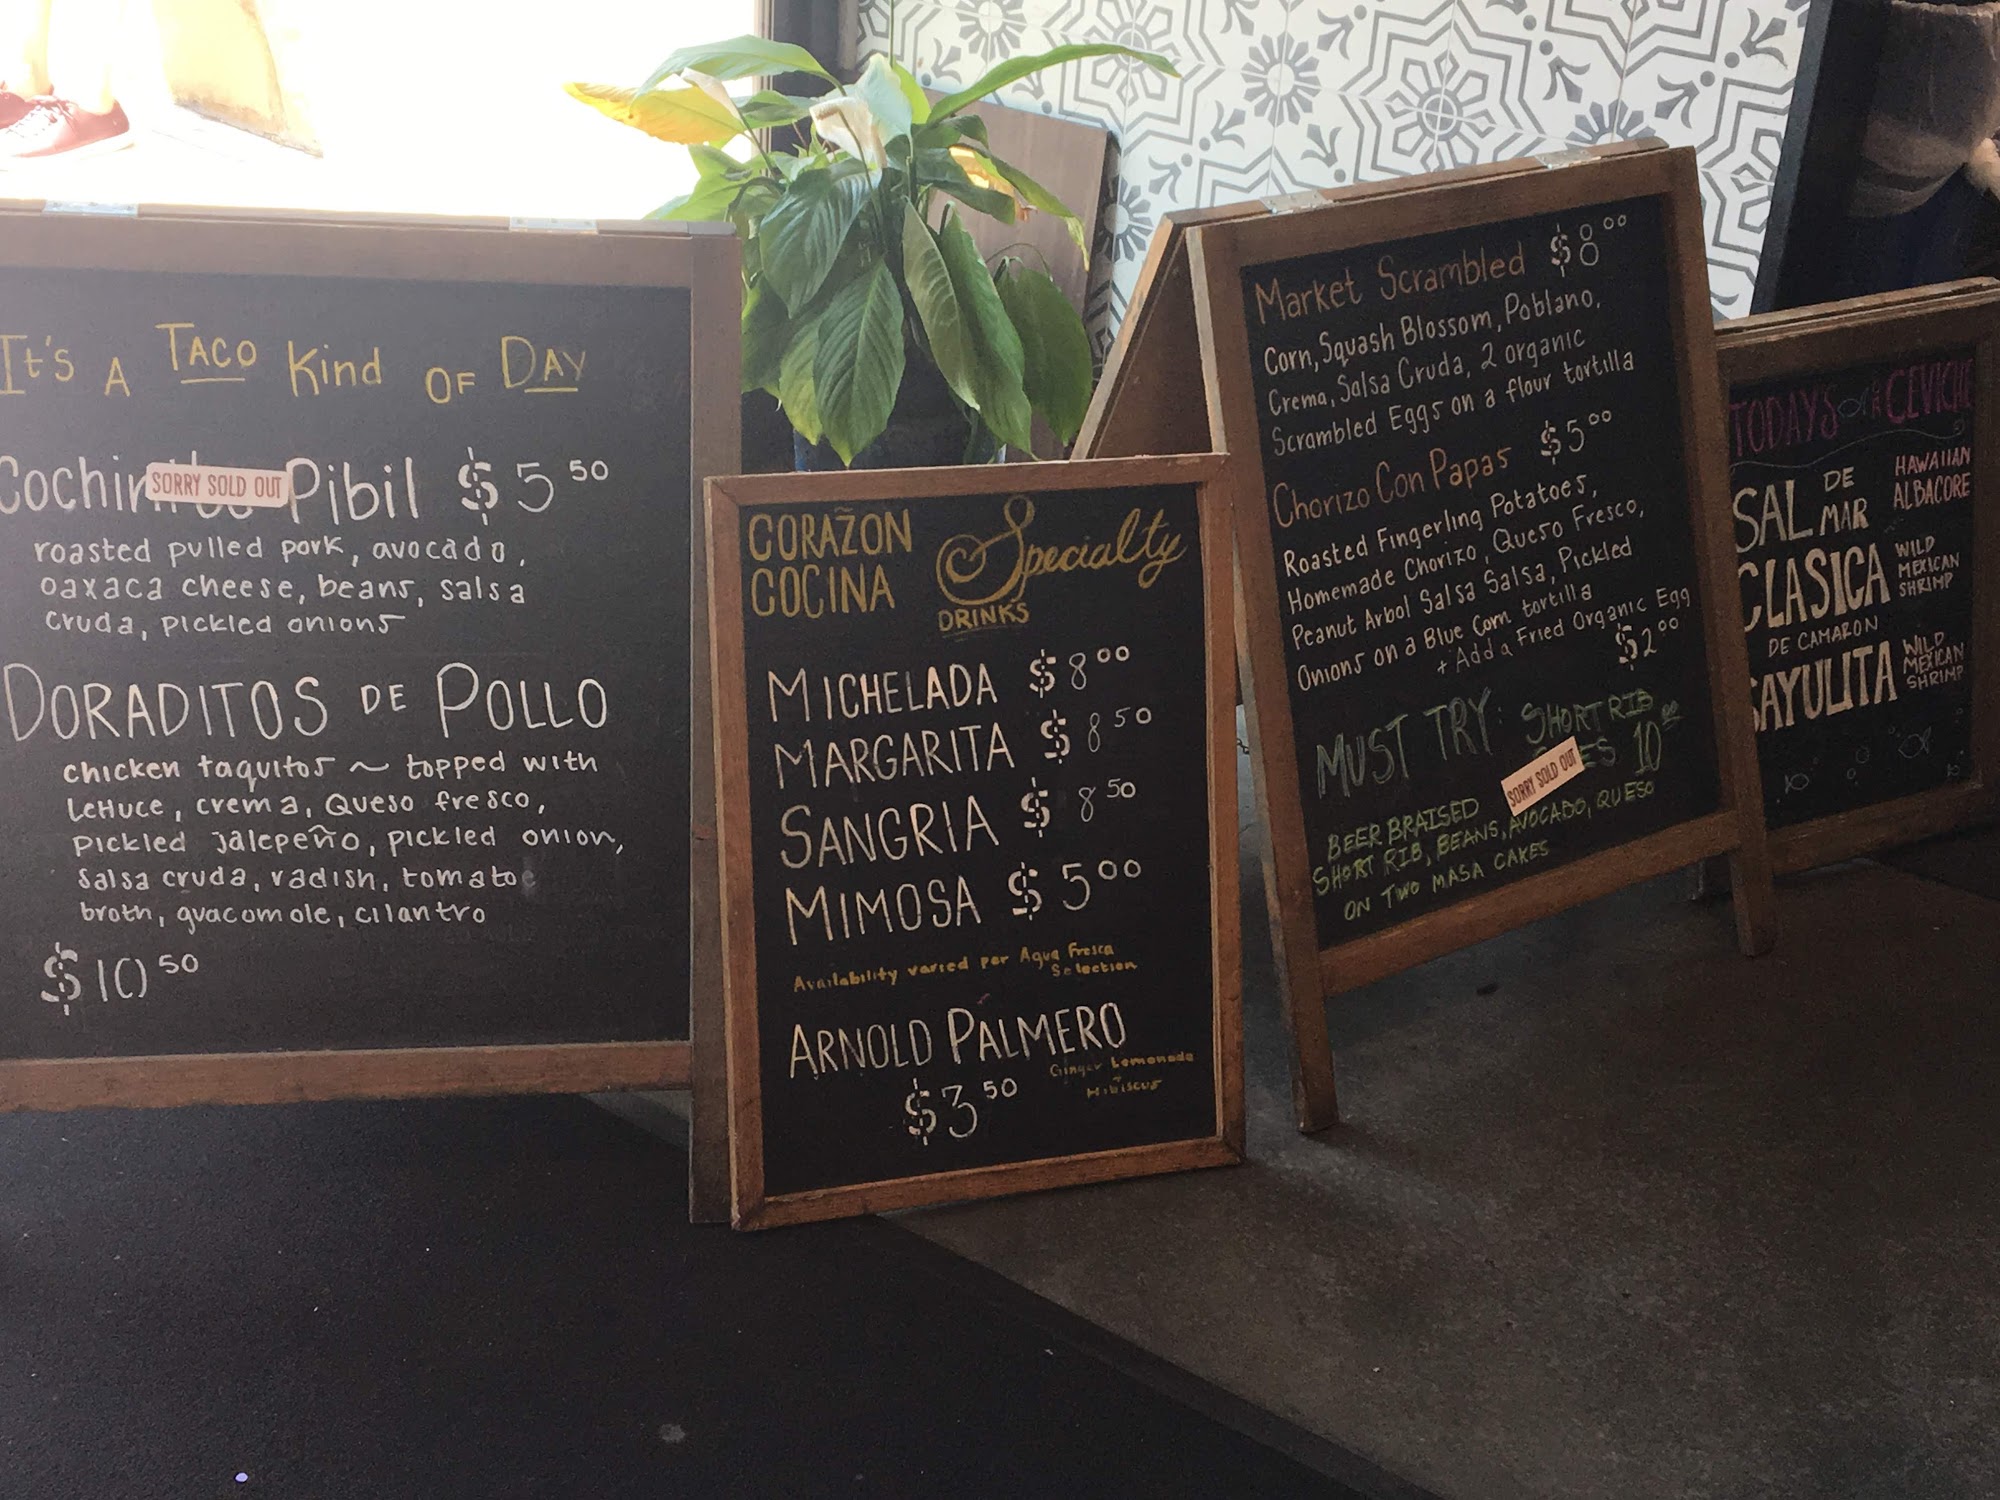 It's A Taco Kind OF DAY
Cochin SORRY SOLD OUT Pibil $5 50
roasted pulled pork, avocado,
oaxaca cheese, beans, salsa
cruda, pickled onions
DORADITOS DE POLLO
chicken taquitos ~ topped with
Lettuce, crema, Queso fresco,
Pickled jalepeño, pickled onion,
Salsa cruda, radish, tomatoe
broth, guacomole, cilantro
$10 50
CORAZON
COCINA
Specialty
DRINKS
MICHELADA $8 00
MARGARITA $8 50
SANGRIA $8 50
MIMOSA $5 00
Availability varied per Agua Fresca
Selection
ARNOLD PALMERO
Ginger Lemonade
Hibiscus
$3 50
Market Scrambled $8 00
Corn, Squash Blossom, Poblano,
Crema, Salsa Cruda, 2 organic
Scrambled Eggs on a flour tortilla
Chorizo Con Papas $5 00
Roasted Fingerling Potatoes,
Homemade Chorizo, Queso Fresco,
Peanut Arbol Salsa Salsa, Pickled
Onions on a Blue Corn tortilla
+ Add a Fried Organic Egg
$2 00
MUST TRY: SHORT RIB
10 00
SORRY SOLD OUT
BEER BRAISED
SHORT RIB, BEANS, AVOCADO, QUESO
ON TWO MASA CAKES
TODAYS CEVICHE
SAL DE MAR
HAWAIIAN
ALBACORE
CLASICA
DE CAMARON
WILD
MEXICAN
SHRIMP
SAYULITA
WILD
MEXICAN
SHRIMP